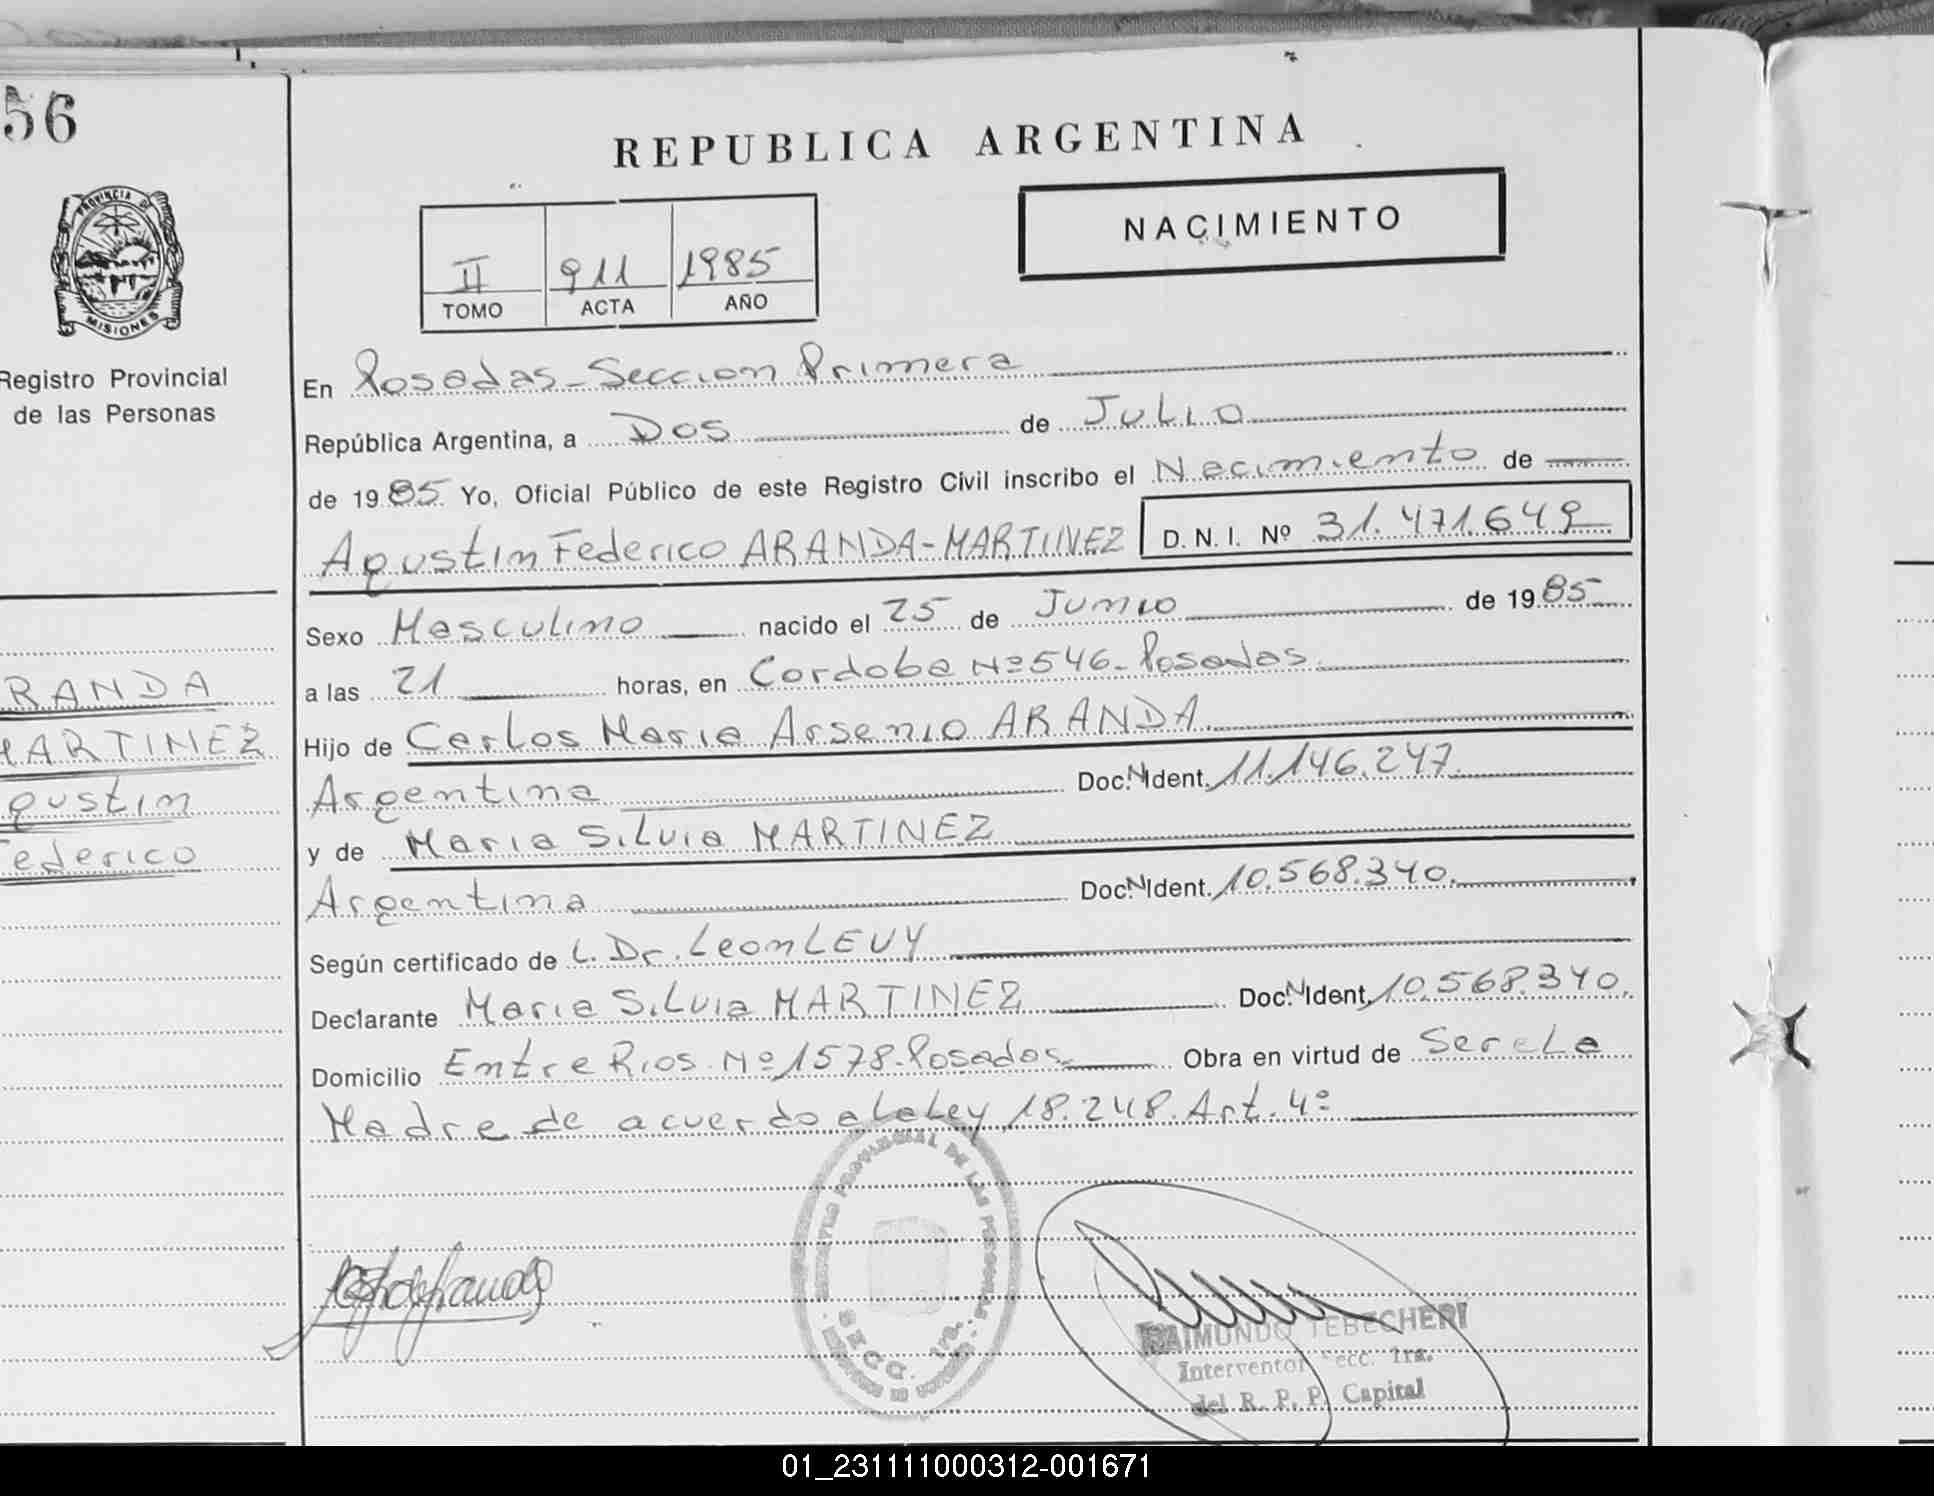 56
PROVINCIA DE
MISIONES
Registro Provincial
de las Personas
RANDA
MARTINEZ
gustin
Federico
REPUBLICA ARGENTINA
NACIMIENTO
II 911 1985
TOMO ACTA AÑO
En Posadas-Seccion Primera
República Argentina, a Dos de Julio
de 1985 Yo, Oficial Público de este Registro Civil inscribo el Nacimiento de
Agustin Federico ARANDA-MARTINEZ D. N. I. Nº 31.471.649
Sexo Masculino nacido el 25 de Junio de 1985
a las 21 horas, en Cordoba Nº 546-Posadas
Hijo de Carlos Maria Arsenio ARANDA
Argentina Doc. N Ident. 11.146.247.
y de Maria Silvia MARTINEZ
Argentina Doc. N Ident. 10.568.340.
Según certificado de L. Dr. Leon LEVY
Declarante Maria Silvia MARTINEZ Doc. N Ident. 10.568.340.
Domicilio Entre Rios Nº 1578-Posadas Obra en virtud de Ser el La
Madre de acuerdo a la Ley 18.248. Art. 4º
REGISTRO PROVINCIAL DE LAS PERSONAS
SECC. 1ra.
RAIMUNDO TEBECHERI
Interventor Secc. 1ra.
del R. P. P. Capital
01_231111000312-001671